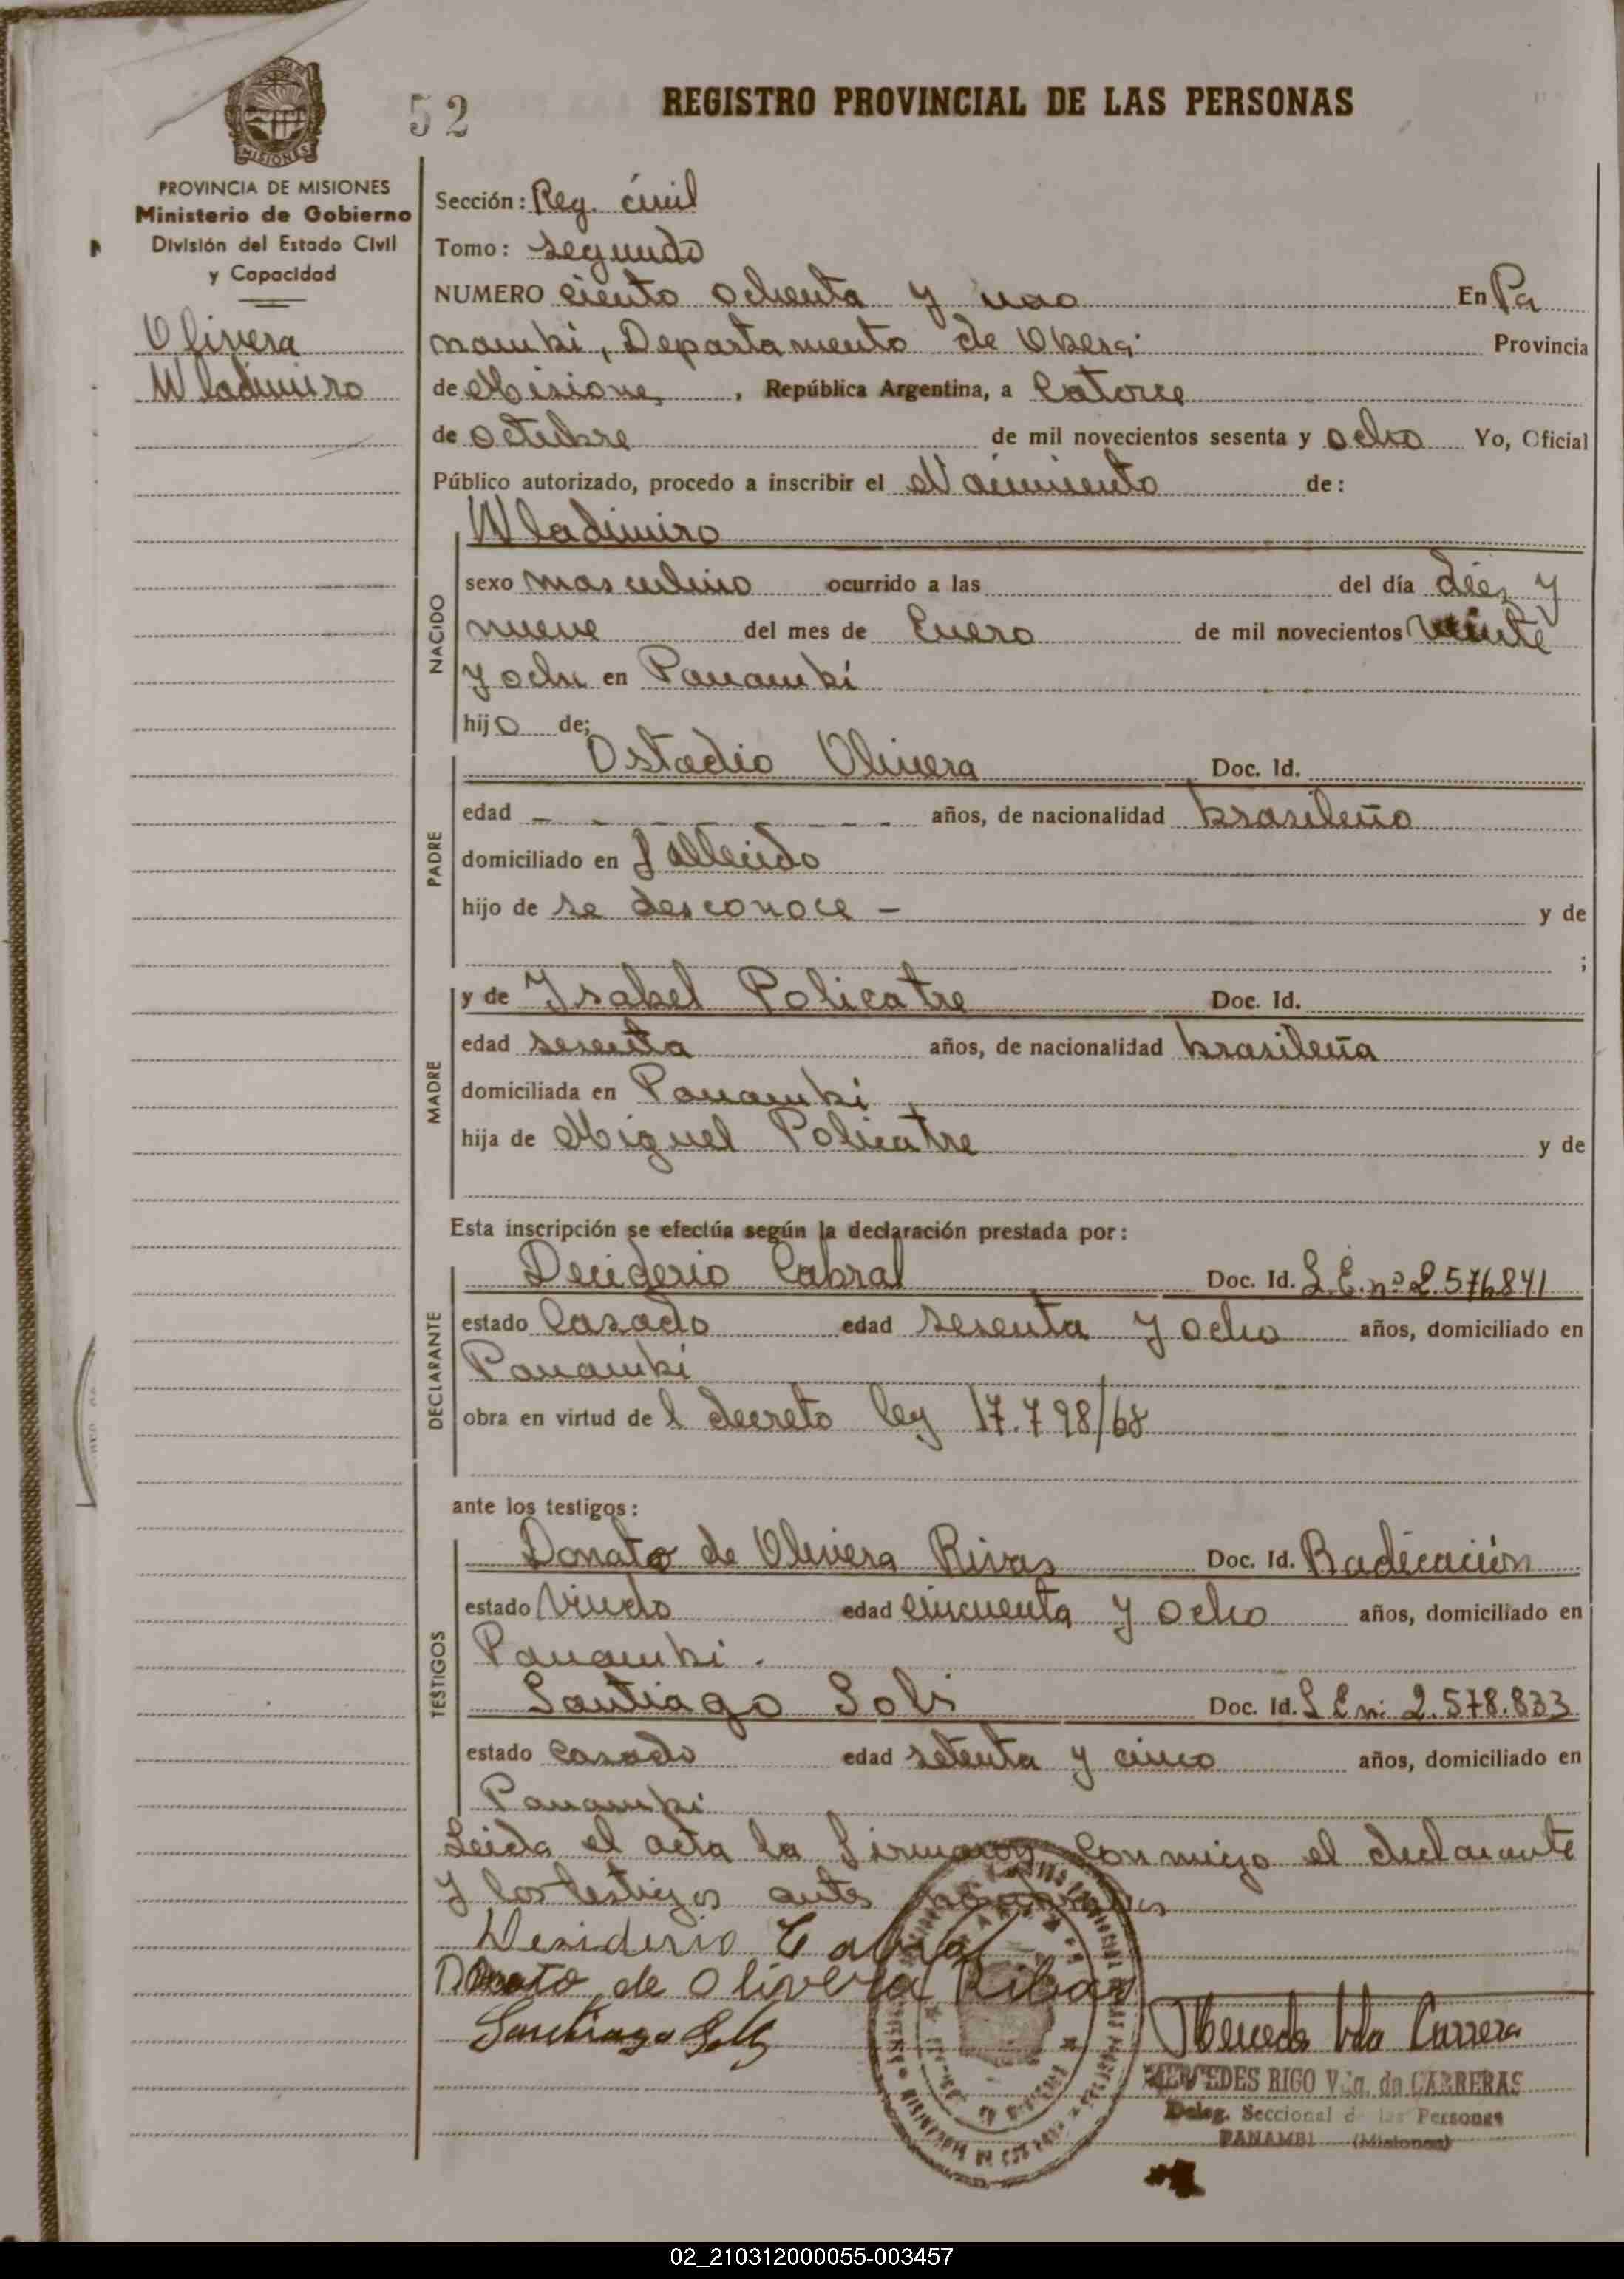 52
REGISTRO PROVINCIAL DE LAS PERSONAS
MISIONES
PROVINCIA DE MISIONES
Ministerio de Gobierno
División del Estado Civil
y Capacidad
Olivera
Wladimiro
Sección: Reg. civil
Tomo: segundo
NUMERO ciento ochenta y uno En Pa
nambi, Departamento de Obera Provincia
de Misiones, República Argentina, a Catorce
de octubre de mil novecientos sesenta y ocho Yo, Oficial
Público autorizado, procedo a inscribir el Nacimiento de:
NACIDO
Wladimiro
sexo masculino ocurrido a las del día diez y
nueve del mes de Enero de mil novecientos veinte
y ocho en Panambi
hijo de;
PADRE
Ostadio Olivera Doc. Id.
edad – – – – – – años, de nacionalidad brasileño
domiciliado en fallecido
hijo de se desconoce – y de
;
MADRE
y de Ysabel Policatre Doc. Id.
edad sesenta años, de nacionalidad brasileña
domiciliada en Panambi
hija de Miguel Policatre y de
Esta inscripción se efectúa según la declaración prestada por:
DECLARANTE
Deciderio Cabral Doc. Id. L.E. nº 2.576841
estado Casado edad sesenta y ocho años, domiciliado en
Panambi
obra en virtud del decreto ley 17.798/68
ante los testigos:
TESTIGOS
Donato de Olivera Rivas Doc. Id. Radicación
estado Viudo edad cincuenta y ocho años, domiciliado en
Panambi.
Santiago Solis Doc. Id. L E n: 2.578.833
estado casado edad setenta y cinco años, domiciliado en
Panambi
Leida el acta la firmaron conmigo el declarante
y los testigos antes nombrados
Desiderio Cabral
Donato de Olivera Ribas
Santiago
Vda Carrera
MERCEDES RIGO Vda. de CARRERAS
Deleg. Seccional de las Personas
PANAMBI (Misiones)
02_210312000055-003457